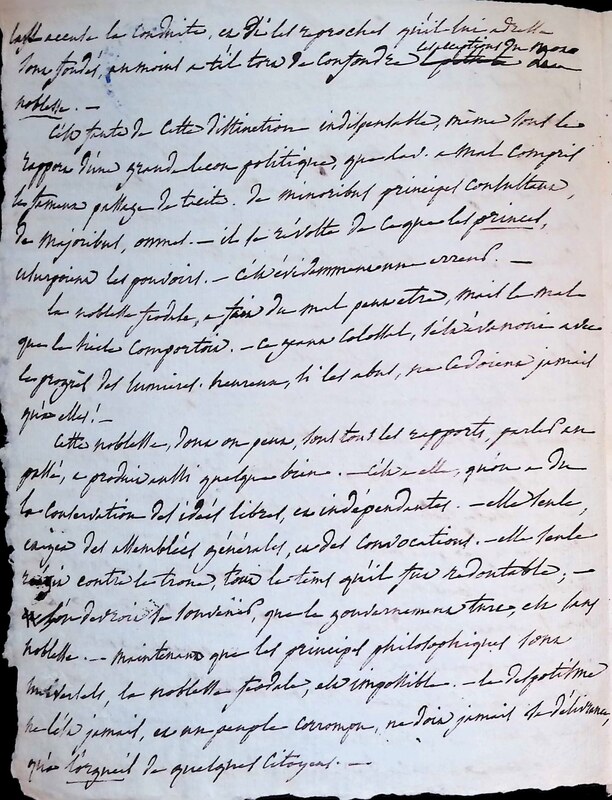 accuse la conduite, en dé les reproches qu'il lui adresse
sont fondés, au moins a t'il tort de confondre les exceptions du
noblesse. —
C'est faute de cette distinction indispensable, même sous le
rapport d'une grande leçon politique, que a mal compris
le fameux passage de tacite. de minoribus principes consultant,
de majoribus, omnes. — il se révolte de ce que les princes,
usurpoient les pouvoirs. — C'est évidemment une erreur. —
la noblesse féodale, a fait du mal peut etre, mais le mal
que le siecle comportoit. — ce géant colossal, s'est évanoui avec
les progrès des lumieres. heureux, si les abus, ne cedoient jamais
qu'à elles! —
Cette noblesse, dont on peut, sous tous les rapports, parler au
passé, a produit aussi quelque bien. — C'est a elle, qu'on a du
la conservation des idées libres, et indépendantes. — elle seule,
exigea des assemblées générales, et des convocations. — elle seule
contre le trone, tout le tems qu'il fut redoutable; —
l'on devroit se souvenir, que le gouvernement turc, est sans
noblesse. — maintenant que les principes philosophiques sont
universels, la noblesse féodale, est impossible. — le despotisme
ne l'est jamais, et un peuple corrompu, ne doit jamais sa délivrance,
qu'à l'orgueil de quelques Citoyens. —